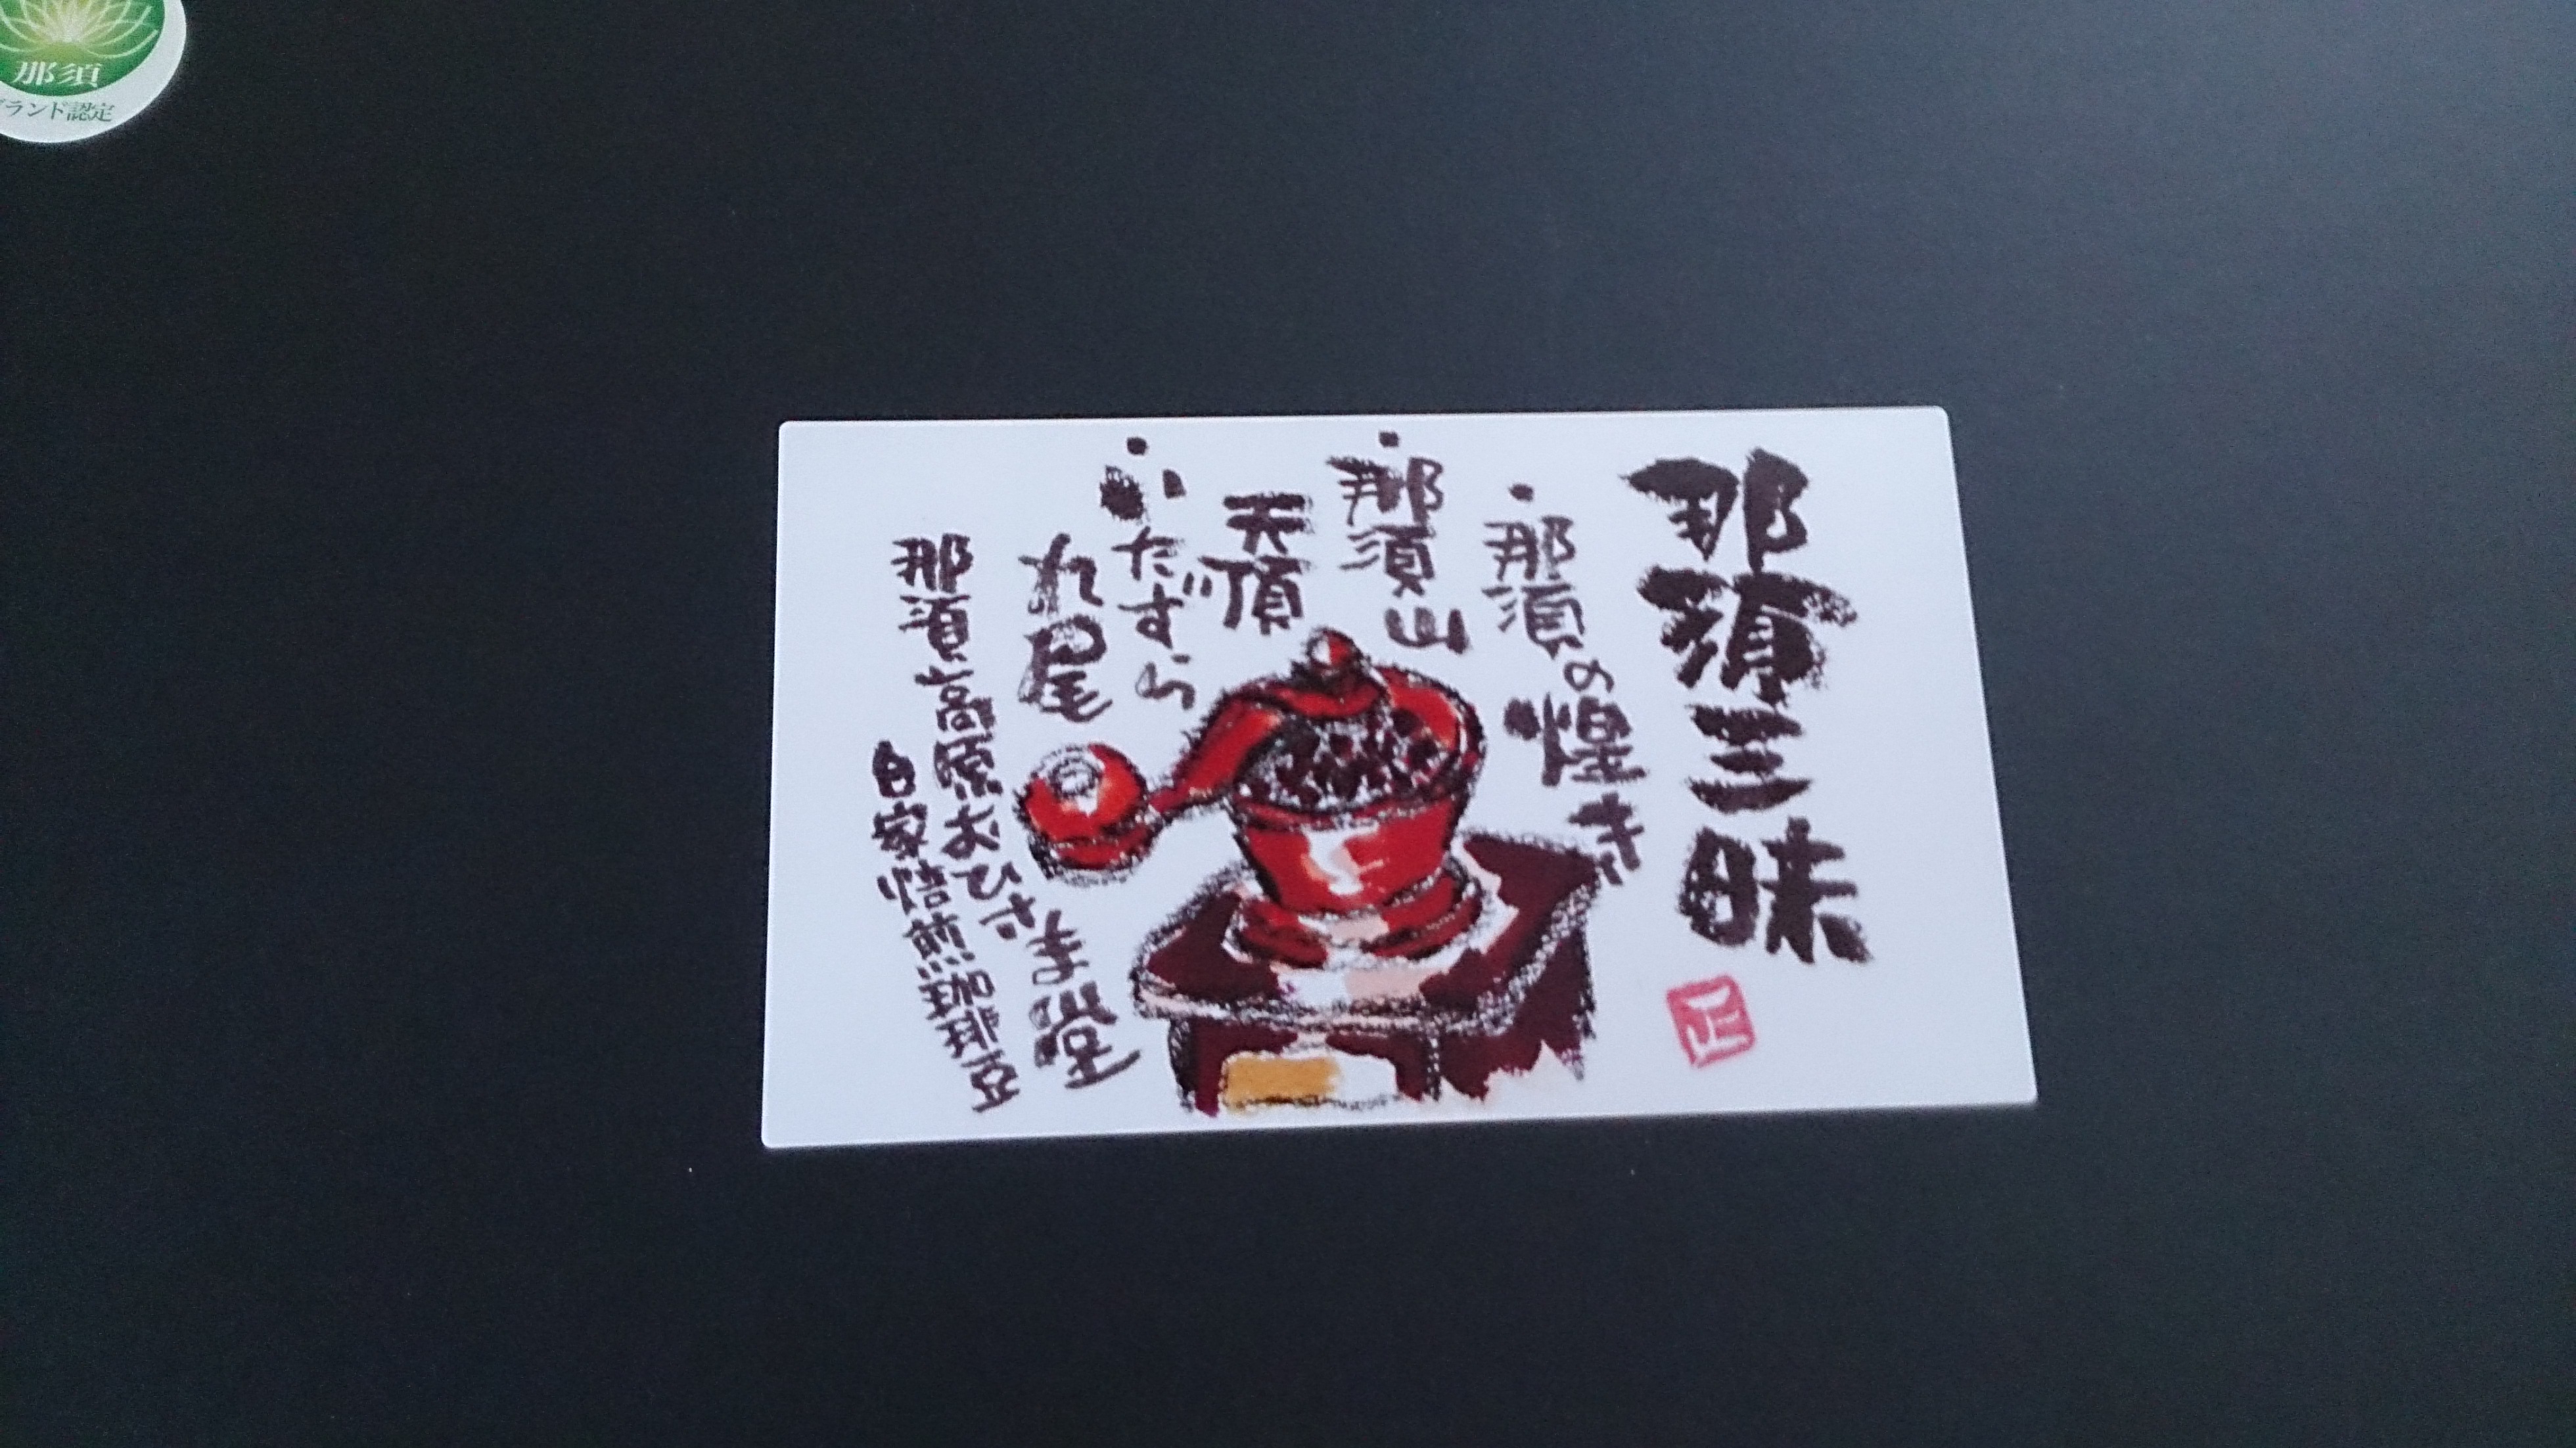 那須
ランド認定
那須三昧
・那須の煌き
・那須山
天頂
・いたずら
九尾
那須高原おひさま堂
自家焙煎珈琲豆
正